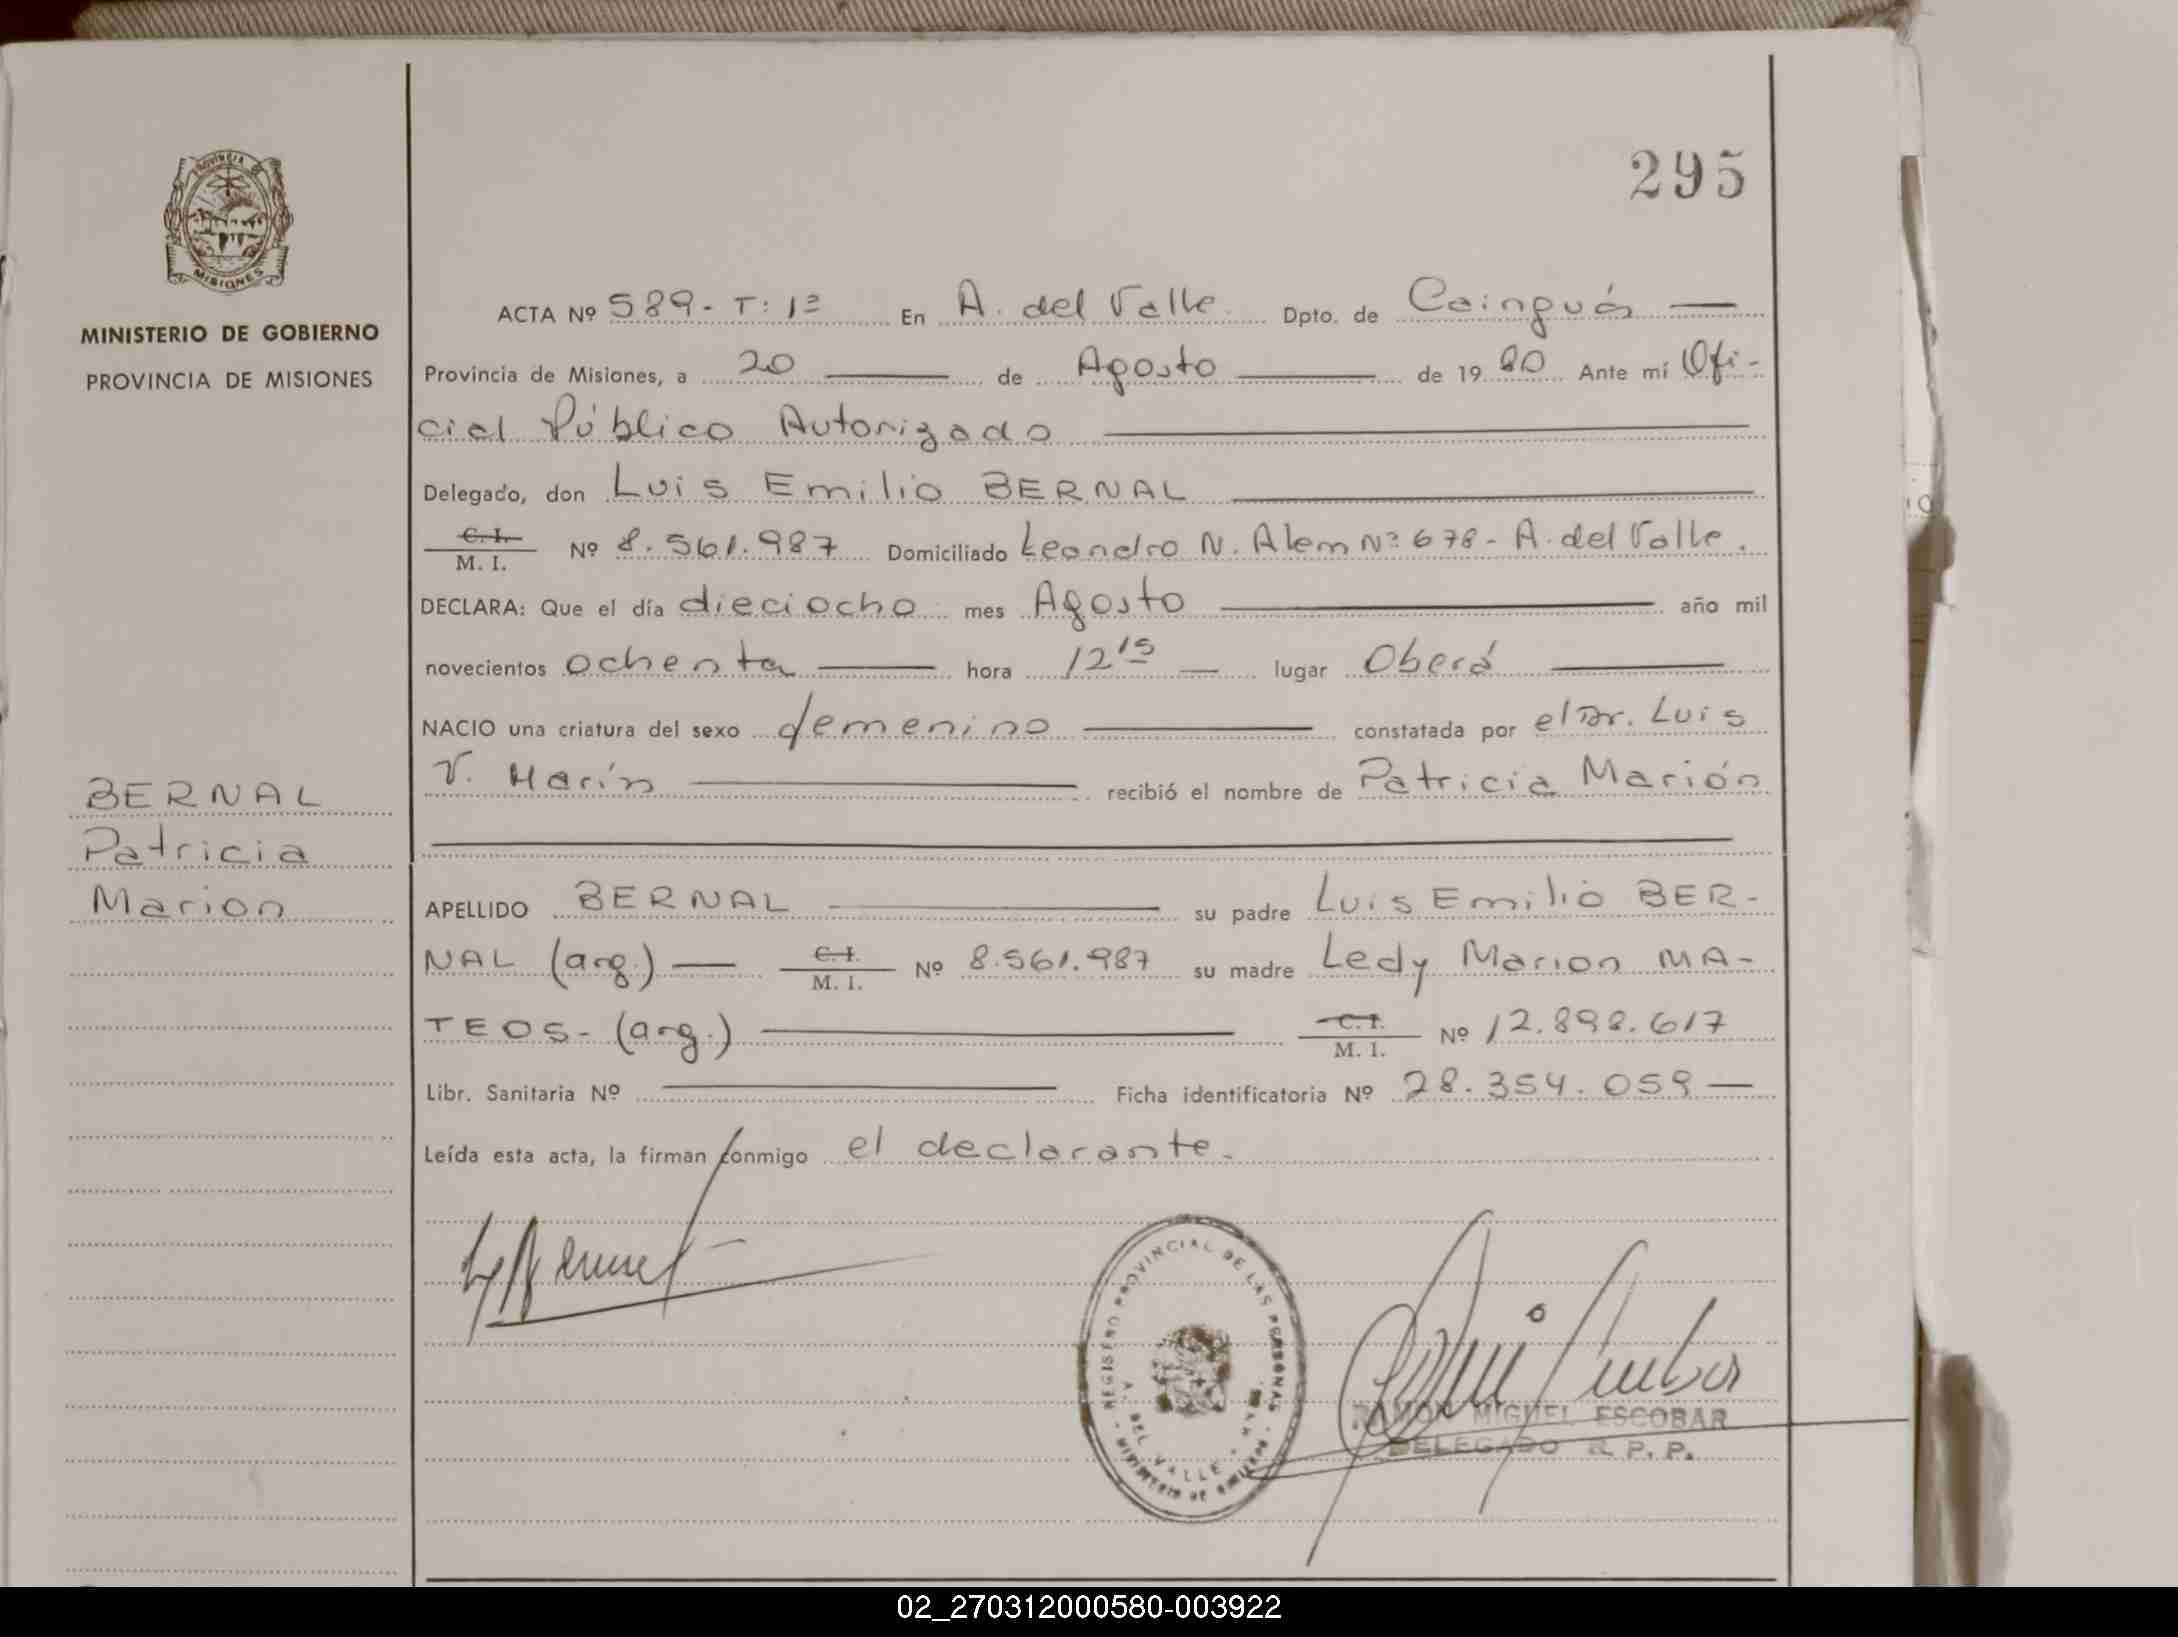 295
PROVINCIA DE
MISIONES
MINISTERIO DE GOBIERNO
PROVINCIA DE MISIONES
ACTA Nº 589- T: 1º En A. del Valle Dpto. de Cainguás
Provincia de Misiones, a 20 de Agosto de 1980 Ante mí Ofi-
cial Público Autorizado
Delegado, don Luis Emilio BERNAL
C. I.
M. I. Nº 8.561.987 Domiciliado Leandro N. Alem Nº 678- A. del Valle.
DECLARA: Que el día dieciocho mes Agosto año mil
novecientos ochenta hora 12 15 lugar Oberá
NACIO una criatura del sexo femenino constatada por el Dr. Luis
V. Marín recibió el nombre de Patricia Marión
BERNAL
Patricia
Marion
APELLIDO BERNAL su padre Luis Emilio BER-
NAL (arg.) C. I.
M. I. Nº 8.561.987 su madre Ledy Marion MA-
TEOS- (arg.) C. I.
M. I. Nº 12.898.617
Libr. Sanitaria Nº Ficha identificatoria Nº 28.354.059
Leída esta acta, la firman conmigo el declarante.
REGISTRO PROVINCIAL DE LAS PERSONAS
A. DEL VALLE
MINISTERIO DE GOBIERNO
RAMON MIGUEL ESCOBAR
DELEGADO R. P. P.
02_270312000580-003922